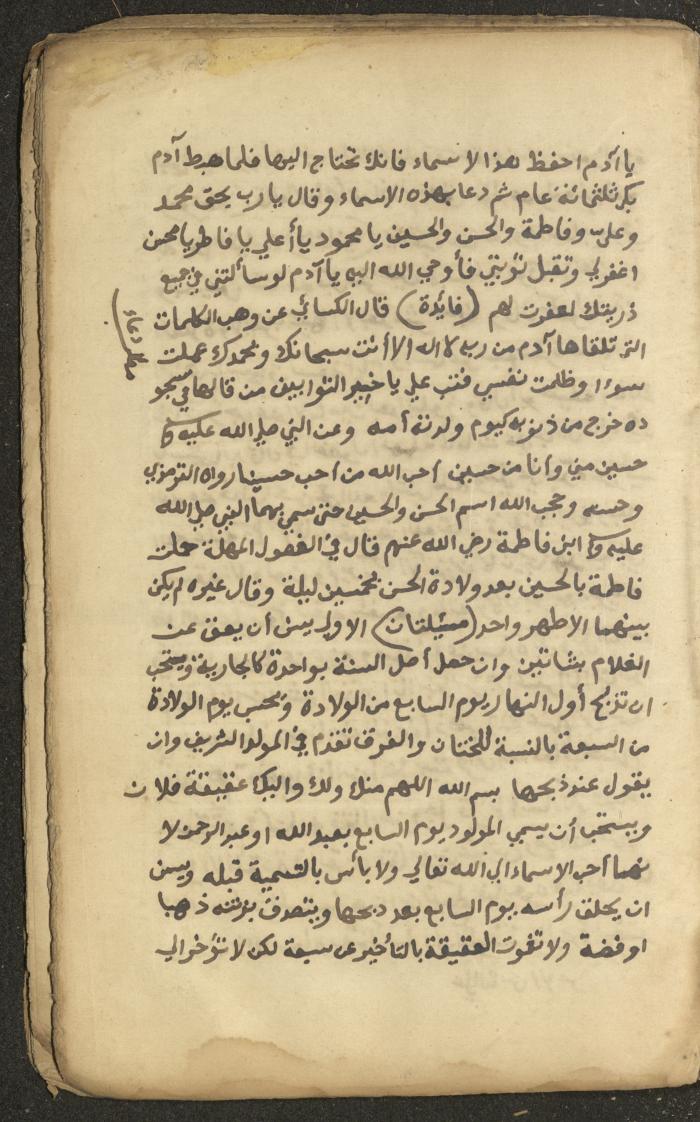 يا آدم احفظ هذا الاسماء فانك تحتاج اليها فلما هبط آدم
بكى ثلثمائة عام ثم دعا بهذه الاسماء وقال يارب بحق محمد
وعلي وفاطمة والحسن والحسين يا محمود يا أعلي يا فاطر يا محسن
اغفرلي وتقبل توبتي فأوحي الله اليه يا آدم لو سألتني في جميع
ذريتك لغفرت لهم (فايدة) قال الكسائي عن وهب الكلمات
التي تلقاها آدم من ربه لا اله الا أنت سبحانك وبحمدك عملت
سوءا وظلمت نفسي فتب علي يا خير التوابين من قالها في سجو
ده خرج من ذنوبه كيوم ولدته أمه وعن النبي صلي الله عليه و
حسين مني وأنا من حسين أحب الله من أحب حسينا رواه الترمذي
وحسنه وحجب الله اسم الحسن والحسين حتي سمي بهما النبي صلي الله
عليه و ابني فاطمة رضي الله عنهم قال في الفصول المهمة حملت
فاطمة بالحسين بعد ولادة الحسن بخمسين ليلة وقال غيره لم يكن
بينهما الا طهر واحد (مسئلتان) الاولي يسن أن يعق عن
الغلام بشاتين وان حصل أصل السنة بواحدة كالجارية ويستحب
ان تذبح أول النهار يوم السابع من الولادة ويحسب يوم الولادة
من السبعة بالنسبة للختان والفرق تقدم في المولد الشريف وان
يقول عند ذبحها بسم الله اللهم منك ولك واليك عقيقة فلان
ويستحب أن يسمي المولود يوم السابع بعبد الله او عبد الرحمن لا
نهما أحب الاسماء الي الله تعالي ولا بأس بالتسمية قبله ويسن
ان يحلق رأسه يوم السابع بعد ذبحها ويتصدق بزنته ذهبا
او فضة ولا تفوت العقيقة بالتأخير عن سبعة لكن لا تؤخر الي